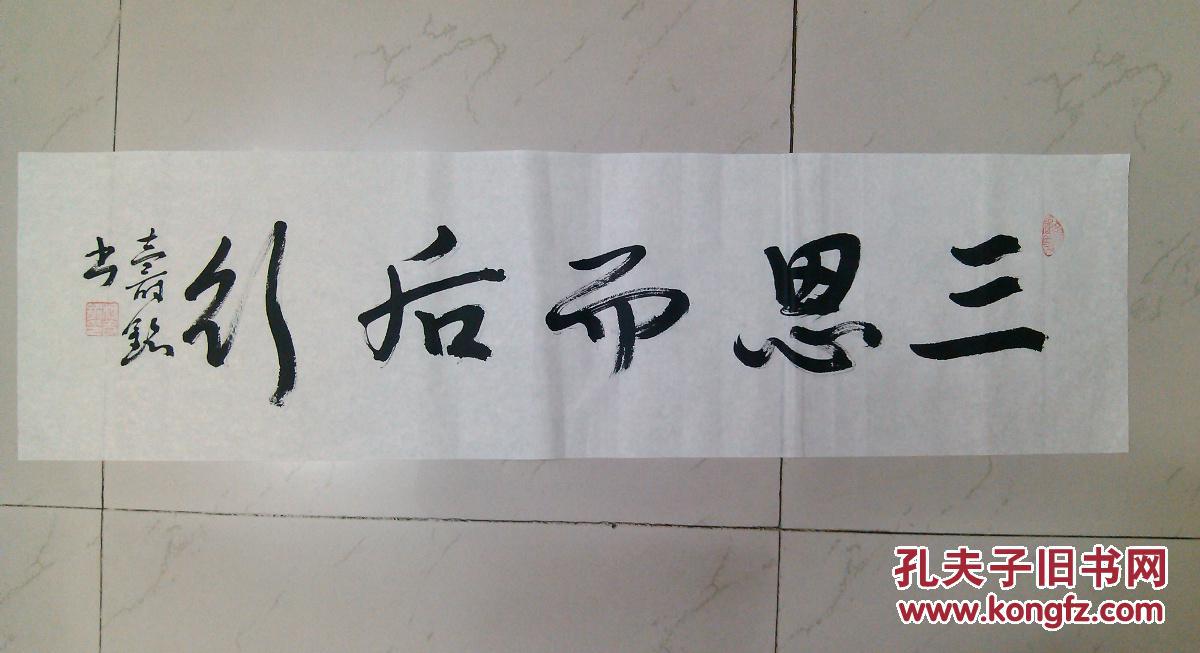 三思而后行
寿铭
书
孔夫子旧书网
www.kongfz.com